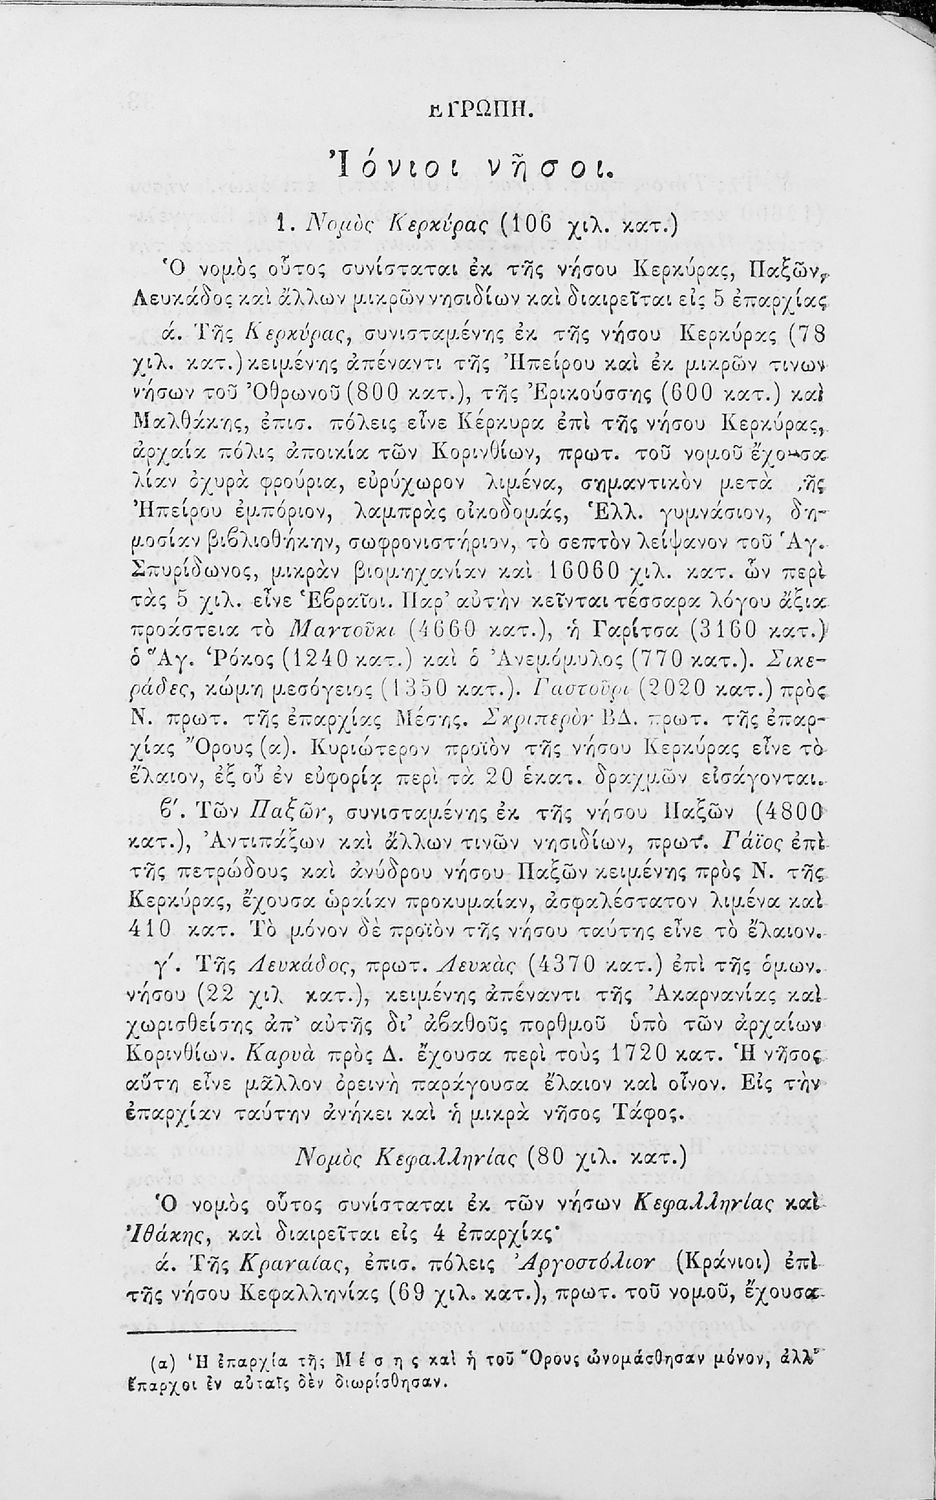 ΕΥΡΩΠΗ.
Ἰόνιοι νῆσοι.
1. Νομὸς Κερκύρας (106 χιλ. κατ.)
Ὁ νομὸς οὗτος συνίσταται ἐκ τῆς νήσου Κερκύρας, Παξῶν,
Λευκάδος καὶ ἄλλων μικρῶν νησιδίων καὶ διαιρεῖται εἰς 5 ἐπαρχίας
ά. Τῆς Κερκύρας, συνισταμένης ἐκ τῆς νήσου Κερκύρας (78
χιλ. κατ.) κειμένης ἀπέναντι τῆς Ἠπείρου καὶ ἐκ μικρῶν τινων
νήσων τοῦ Ὀθρωνοῦ (800 κατ.), τῆς Ἐρικούσσης (600 κατ.) καὶ
Μαλθάκης, ἐπισ. πόλεις εἶνε Κέρκυρα ἐπὶ τῆς νήσου Κερκύρας,
ἀρχαία πόλις ἀποικία τῶν Κορινθίων, πρωτ. τοῦ νομοῦ ἔχουσα
λίαν ὀχυρὰ φρούρια, εὐρύχωρον λιμένα, σημαντικὸν μετὰ τῆς
Ἠπείρου ἐμπόριον, λαμπρὰς οἰκοδομάς, Ἑλλ. γυμνάσιον, δη-
μοσίαν βιβλιοθήκην, σωφρονιστήριον, τὸ σεπτὸν λείψανον τοῦ Ἁγ.
Σπυρίδωνος, μικρὰν βιομηχανίαν καὶ 16060 χιλ. κατ. ὧν περὶ
τὰς 5 χιλ. εἶνε Ἑβραῖοι. Παρ' αὐτὴν κεῖνται τέσσαρα λόγου ἄξια
προάστεια τὸ Μαντοῦκι (4660 κατ.), ἡ Γαρίτσα (3160 κατ.)
ὁ Ἅγ. Ῥόκος (1240 κατ.) καὶ ὁ Ἀνεμόμυλος (770 κατ.). Σικε-
ράδες, κώμη μεσόγειος (1350 κατ.). Γαστοῦρι (2020 κατ.) πρὸς
Ν. πρωτ. τῆς ἐπαρχίας Μέσης. Σκριπερὸν ΒΔ. πρωτ. τῆς ἐπαρ-
χίας Ὄρους (α). Κυριώτερον προϊὸν τῆς νήσου Κερκύρας εἶνε τὸ
ἔλαιον, ἐξ οὗ ἐν εὐφορίᾳ περὶ τὰ 20 ἑκατ. δραχμῶν εἰσάγονται.
β'. Τῶν Παξῶν, συνισταμένης ἐκ τῆς νήσου Παξῶν (4800
κατ.), Ἀντιπάξων καὶ ἄλλων τινῶν νησιδίων, πρωτ. Γάϊος ἐπὶ
τῆς πετρώδους καὶ ἀνύδρου νήσου Παξῶν κειμένης πρὸς Ν. τῆς
Κερκύρας, ἔχουσα ὡραίαν προκυμαίαν, ἀσφαλέστατον λιμένα καὶ
410 κατ. Τὸ μόνον δὲ προϊὸν τῆς νήσου ταύτης εἶνε τὸ ἔλαιον.
γ'. Τῆς Λευκάδος, πρωτ. Λευκὰς (4370 κατ.) ἐπὶ τῆς ὁμων.
νήσου (22 χιλ κατ.), κειμένης ἀπέναντι τῆς Ἀκαρνανίας καὶ
χωρισθείσης ἀπ' αὐτῆς δι' ἀβαθοῦς πορθμοῦ ὑπὸ τῶν ἀρχαίων
Κορινθίων. Καρυὰ πρὸς Δ. ἔχουσα περὶ τοὺς 1720 κατ. Ἡ νῆσος
αὕτη εἶνε μᾶλλον ὀρεινὴ παράγουσα ἔλαιον καὶ οἶνον. Εἰς τὴν
ἐπαρχίαν ταύτην ἀνήκει καὶ ἡ μικρὰ νῆσος Τάφος.
Νομὸς Κεφαλληνίας (80 χιλ. κατ.)
Ὁ νομὸς οὗτος συνίσταται ἐκ τῶν νήσων Κεφαλληνίας καὶ
Ἰθάκης, καὶ διαιρεῖται εἰς 4 ἐπαρχίας·
ά. Τῆς Κραναίας, ἐπισ. πόλεις Ἀργοστόλιον (Κράνιοι) ἐπὶ
τῆς νήσου Κεφαλληνίας (69 χιλ. κατ.), πρωτ. τοῦ νομοῦ, ἔχουσα
(α) Ἡ ἐπαρχία τῆς Μέσης καὶ ἡ τοῦ Ὄρους ὠνομάσθησαν μόνον, ἀλλ'
ἔπαρχοι ἐν αὐταῖς δὲν διωρίσθησαν.